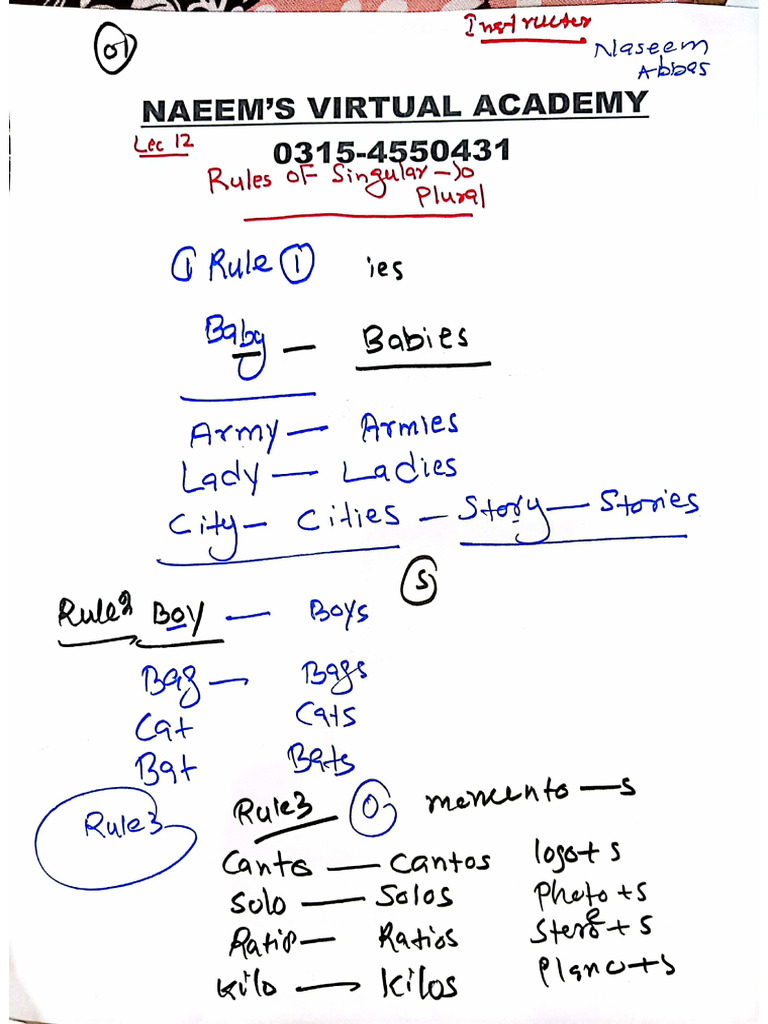 01
Instructer
Naseem
Abbas
NAEEM'S VIRTUAL ACADEMY
Lec 12
0315-4550431
Rules of Singular to
Plural
① Rule ① ies
Baby — Babies
Army — Armies
Lady — Ladies
City — Cities — Story — Stories
S
Rule 2 Boy — Boys
Bag — Bags
Cat Cats
Bat Bats
Rule3
Rule3 O memento — s
Canto — Cantos logo + s
Solo — Solos Photo + s
Ratio — Ratios Stereo + s
Kilo — Kilos Piano + s